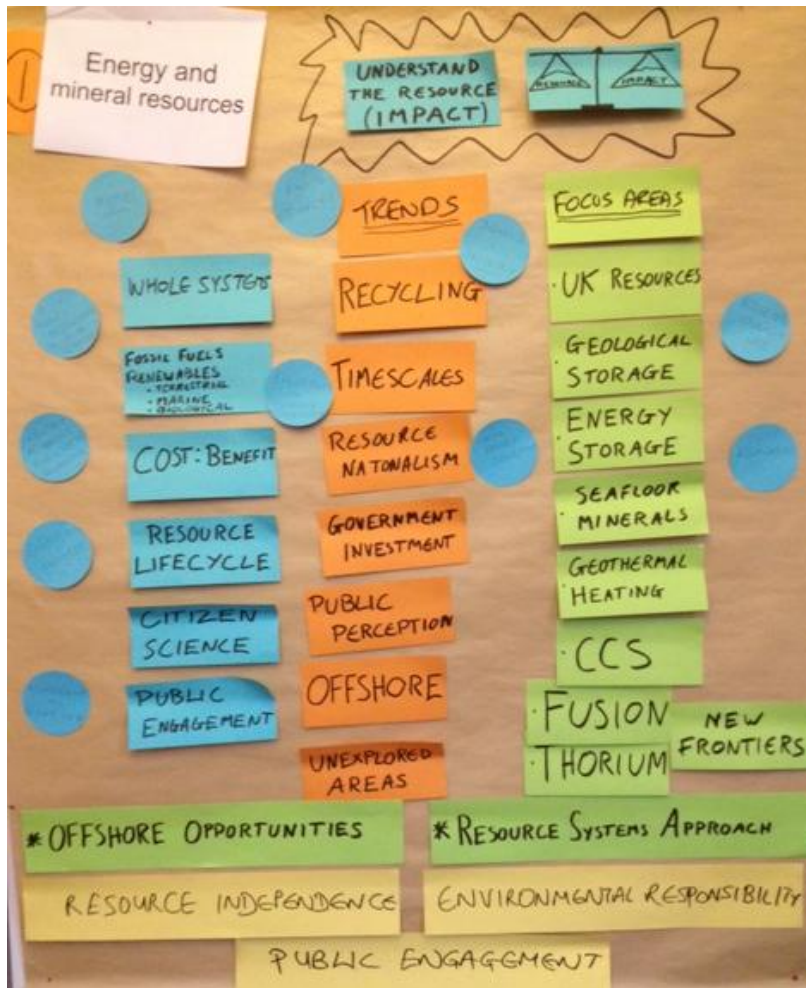 1
Energy and
mineral resources
UNDERSTAND
THE RESOURCE
(IMPACT)
RESOURCE
IMPACT
WHOLE SYSTEM
FOSSIL FUELS
RENEWABLES
• TERRESTRIAL
• MARINE
• BIOLOGICAL
COST:BENEFIT
RESOURCE
LIFECYCLE
CITIZEN
SCIENCE
PUBLIC
ENGAGEMENT
TRENDS
RECYCLING
TIMESCALES
RESOURCE
NATONALISM
GOVERNMENT
INVESTMENT
PUBLIC
PERCEPTION
OFFSHORE
UNEXPLORED
AREAS
FOCUS AREAS
· UK RESOURCES
· GEOLOGICAL
STORAGE
· ENERGY
STORAGE
· SEAFLOOR
MINERALS
· GEOTHERMAL
HEATING
· CCS
· FUSION
· THORIUM
NEW
FRONTIERS
* OFFSHORE OPPORTUNITIES
* RESOURCE SYSTEMS APPROACH
RESOURCE INDEPENDENCE
ENVIRONMENTAL RESPONSIBILITY
PUBLIC ENGAGEMENT